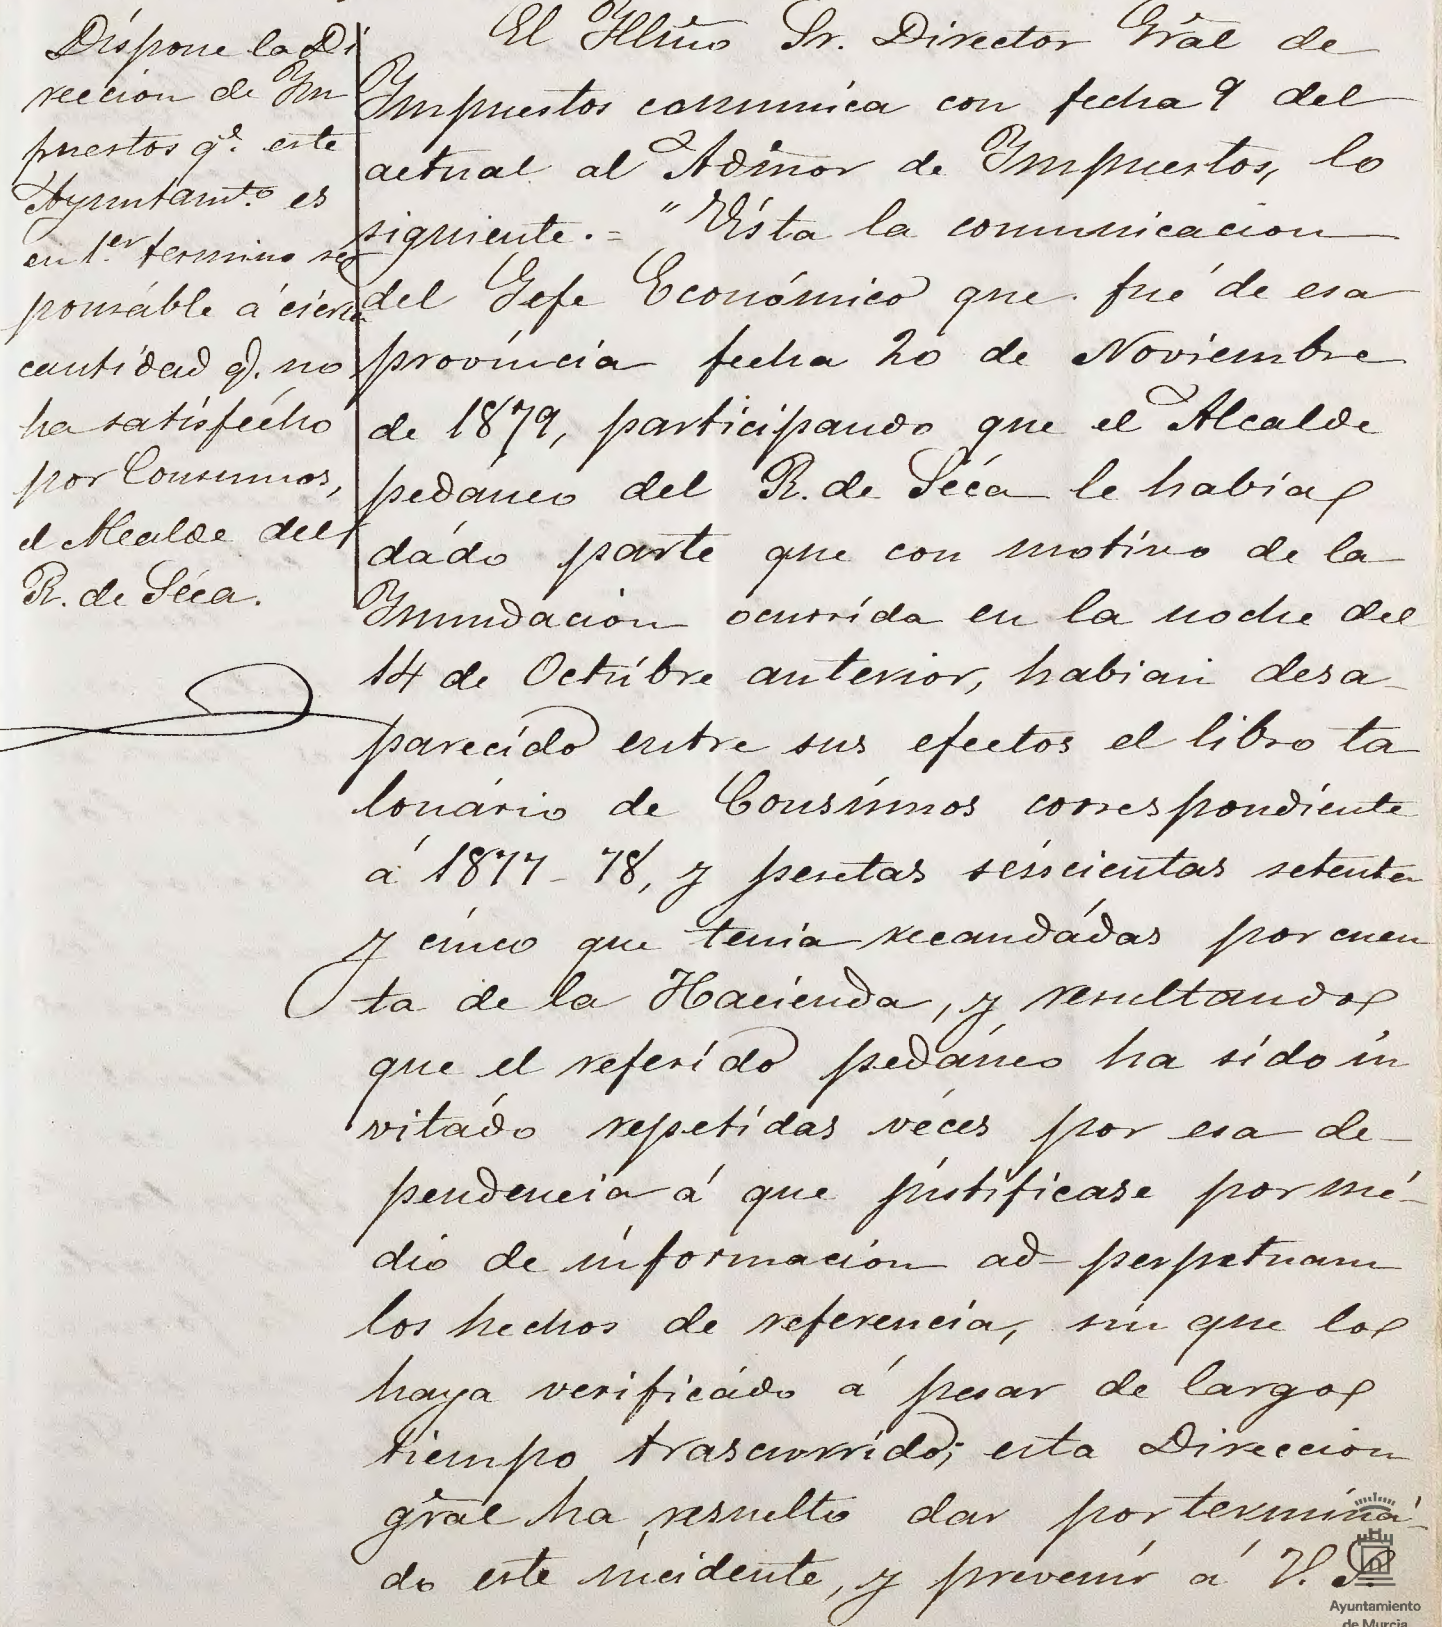 Dispone la Di
reccion de Im
puestos qe. este
Ayuntamto. es
en 1er. termino res
ponsáble á cierta
cantidad q. no
ha satisfecho
por Consumos,
el Alcalde del
R. de Séca.
El Illmo Sr. Director Gral de
Impuestos comunica con fecha 9 del
actual al Admor de Impuestos, lo
siguiente. = "Vista la comunicacion
del Gefe Económico que fué de esa
província fecha 20 de Noviembre
de 1879, participando que el Alcalde
pedáneo del R. de Séca le habia
dádo parte que con motivo de la
Inundación ocurrida en la noche del
14 de Octúbre anterior, habian desa-
parecido entre sus efectos el libro ta
lonário de Consúmos correspondiente
á 1877-78, y pesetas seiscientas setenta
y cinco que tenia recaudádas por cuen
ta de la Hacienda, y resultando
que el referido pedáneo ha sido in
vitádo repetidas véces por esa de-
pendencia á que justificase por mé-
dio de información ad-perpetuam
los hechos de referencia, sin que lo
haya verificádo á pesar de largo
tiempo trascurrido; esta Direccion
gral ha resuelto dar por terminá-
do este incidente, y prevenir á V. S.
Ayuntamiento
de Murcia